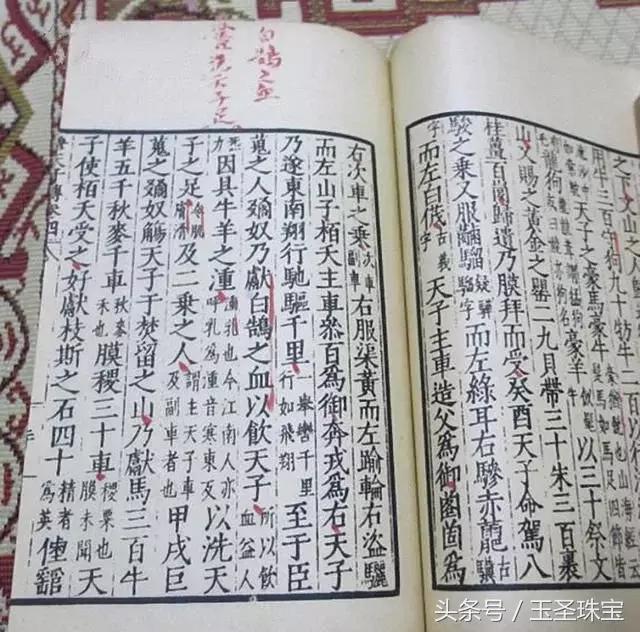 之下文山之人
用牛三百守狗九十牥牛二百以行
天子之豪馬豪牛豪羊以三十祭文
山又賜之黃金之罌二九貝帶三十朱三百裹
桂薑百歸遺乃膜拜而受癸酉天子命駕八
駿之乘又服騮疑驊騮字而左綠耳右驂赤古驥
字而左白俄古義字天子主車造父為御為
白鵠之血
洗天子足
右次車之乘次車副車右服渠黃而左踰輪右盜驪
而左山子栢夭主車叅百為御奔戎為右天子
乃遂東南翔行馳驅千里一舉轡千里行如飛翔至于巨
蒐之人奴乃獻白鵠之血以飲天子所以飲血益人
炁力因具牛羊之湩湩乳也今江南人亦呼乳為湩音寒凍反以洗天
子之足令肌膚滑及二乗之人謂主天子車及副車者也甲戌巨
蒐之奴觴天子于焚留之山乃獻馬三百牛
羊五千秋麥千車秋麥禾也膜稷三十車稷粟也膜未聞天
子使栢夭受之好獻枝斯之石四十精者為英
穆天子傳卷四